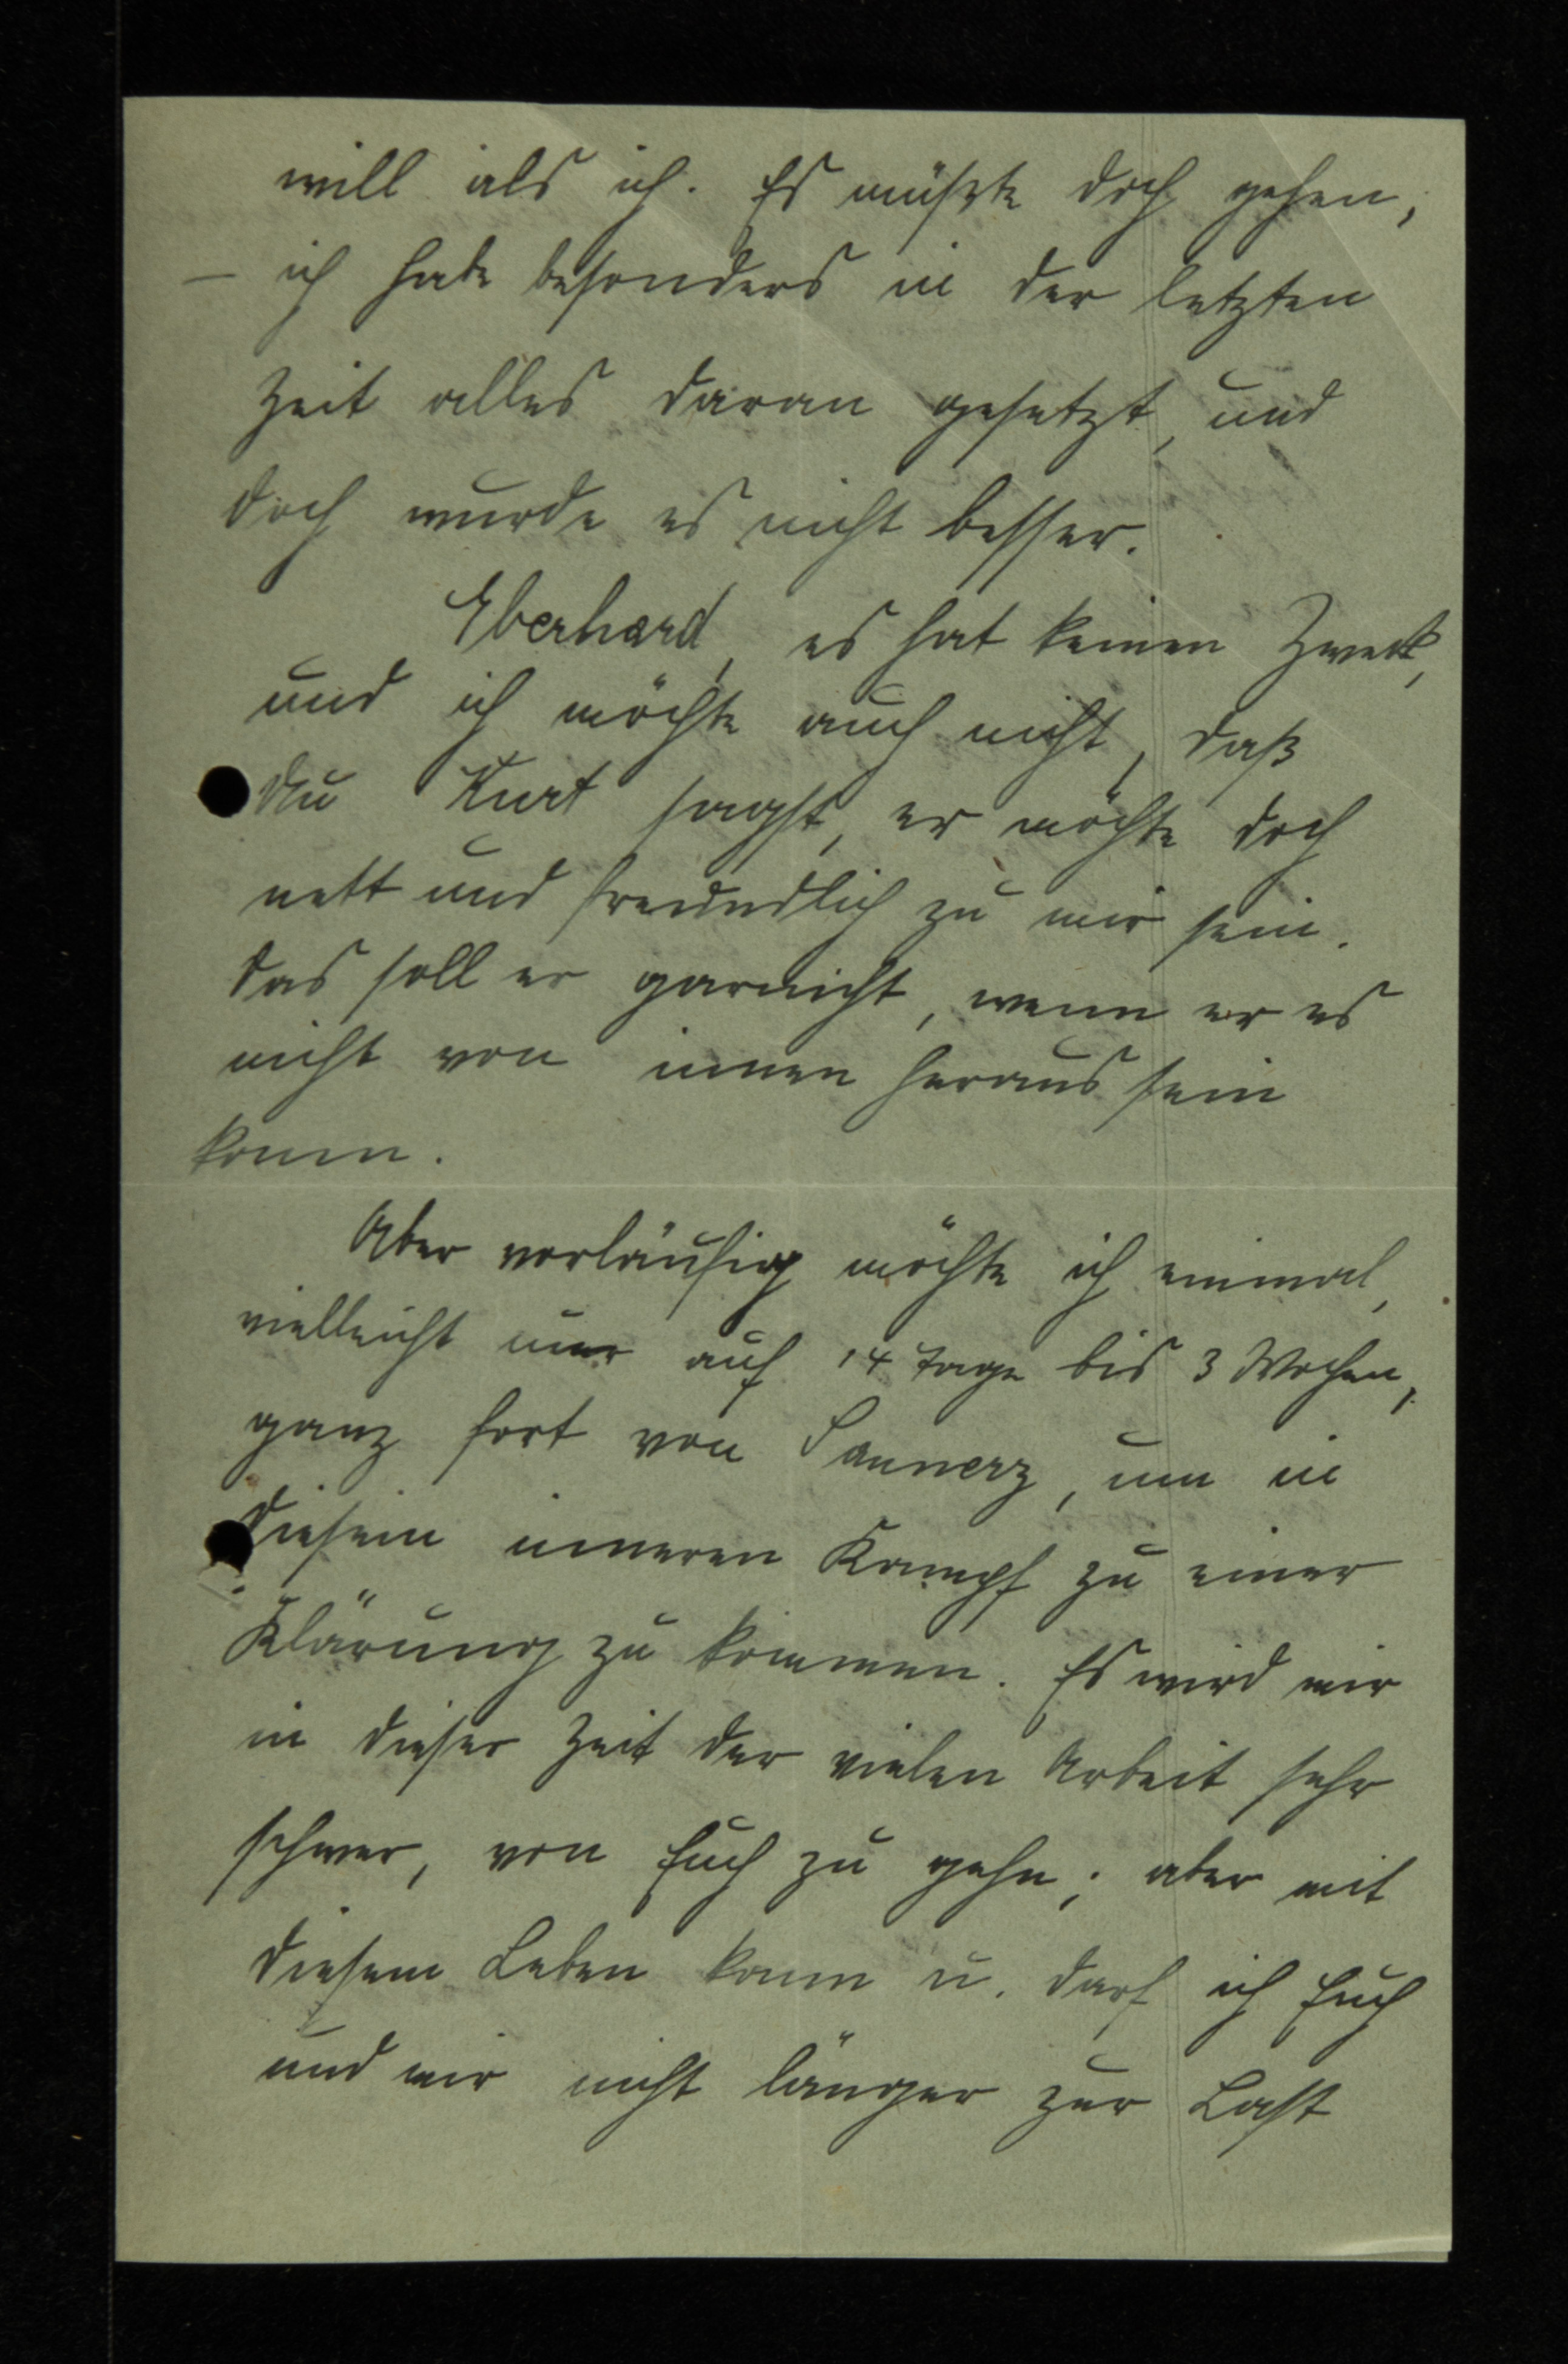 will als ich. Es müßte doch gehen,
– ich habe besonders in der letzten
Zeit alles daran gesetzt, und
doch wurde es nicht besser.
Eberhard, es hat keinen Zweck,
und ich möchte auch nicht, daß
Du Kurt sagst, er möchte doch
nett und freundlich zu mir sein.
Das soll er garnicht, wenn er es
nicht von innen heraus sein
kann.
Aber vorläufig möchte ich einmal,
vielleicht nur auf 14 Tage bis 3 Wochen,
ganz fort von Sannerz, um in
diesem inneren Kampf zu einer
Klärung zu kommen. Es wird mir
in dieser Zeit der vielen Arbeit sehr
schwer, von Euch zu gehn; aber mit
diesem Leben kann u. darf ich Euch
und mir nicht länger zur Last